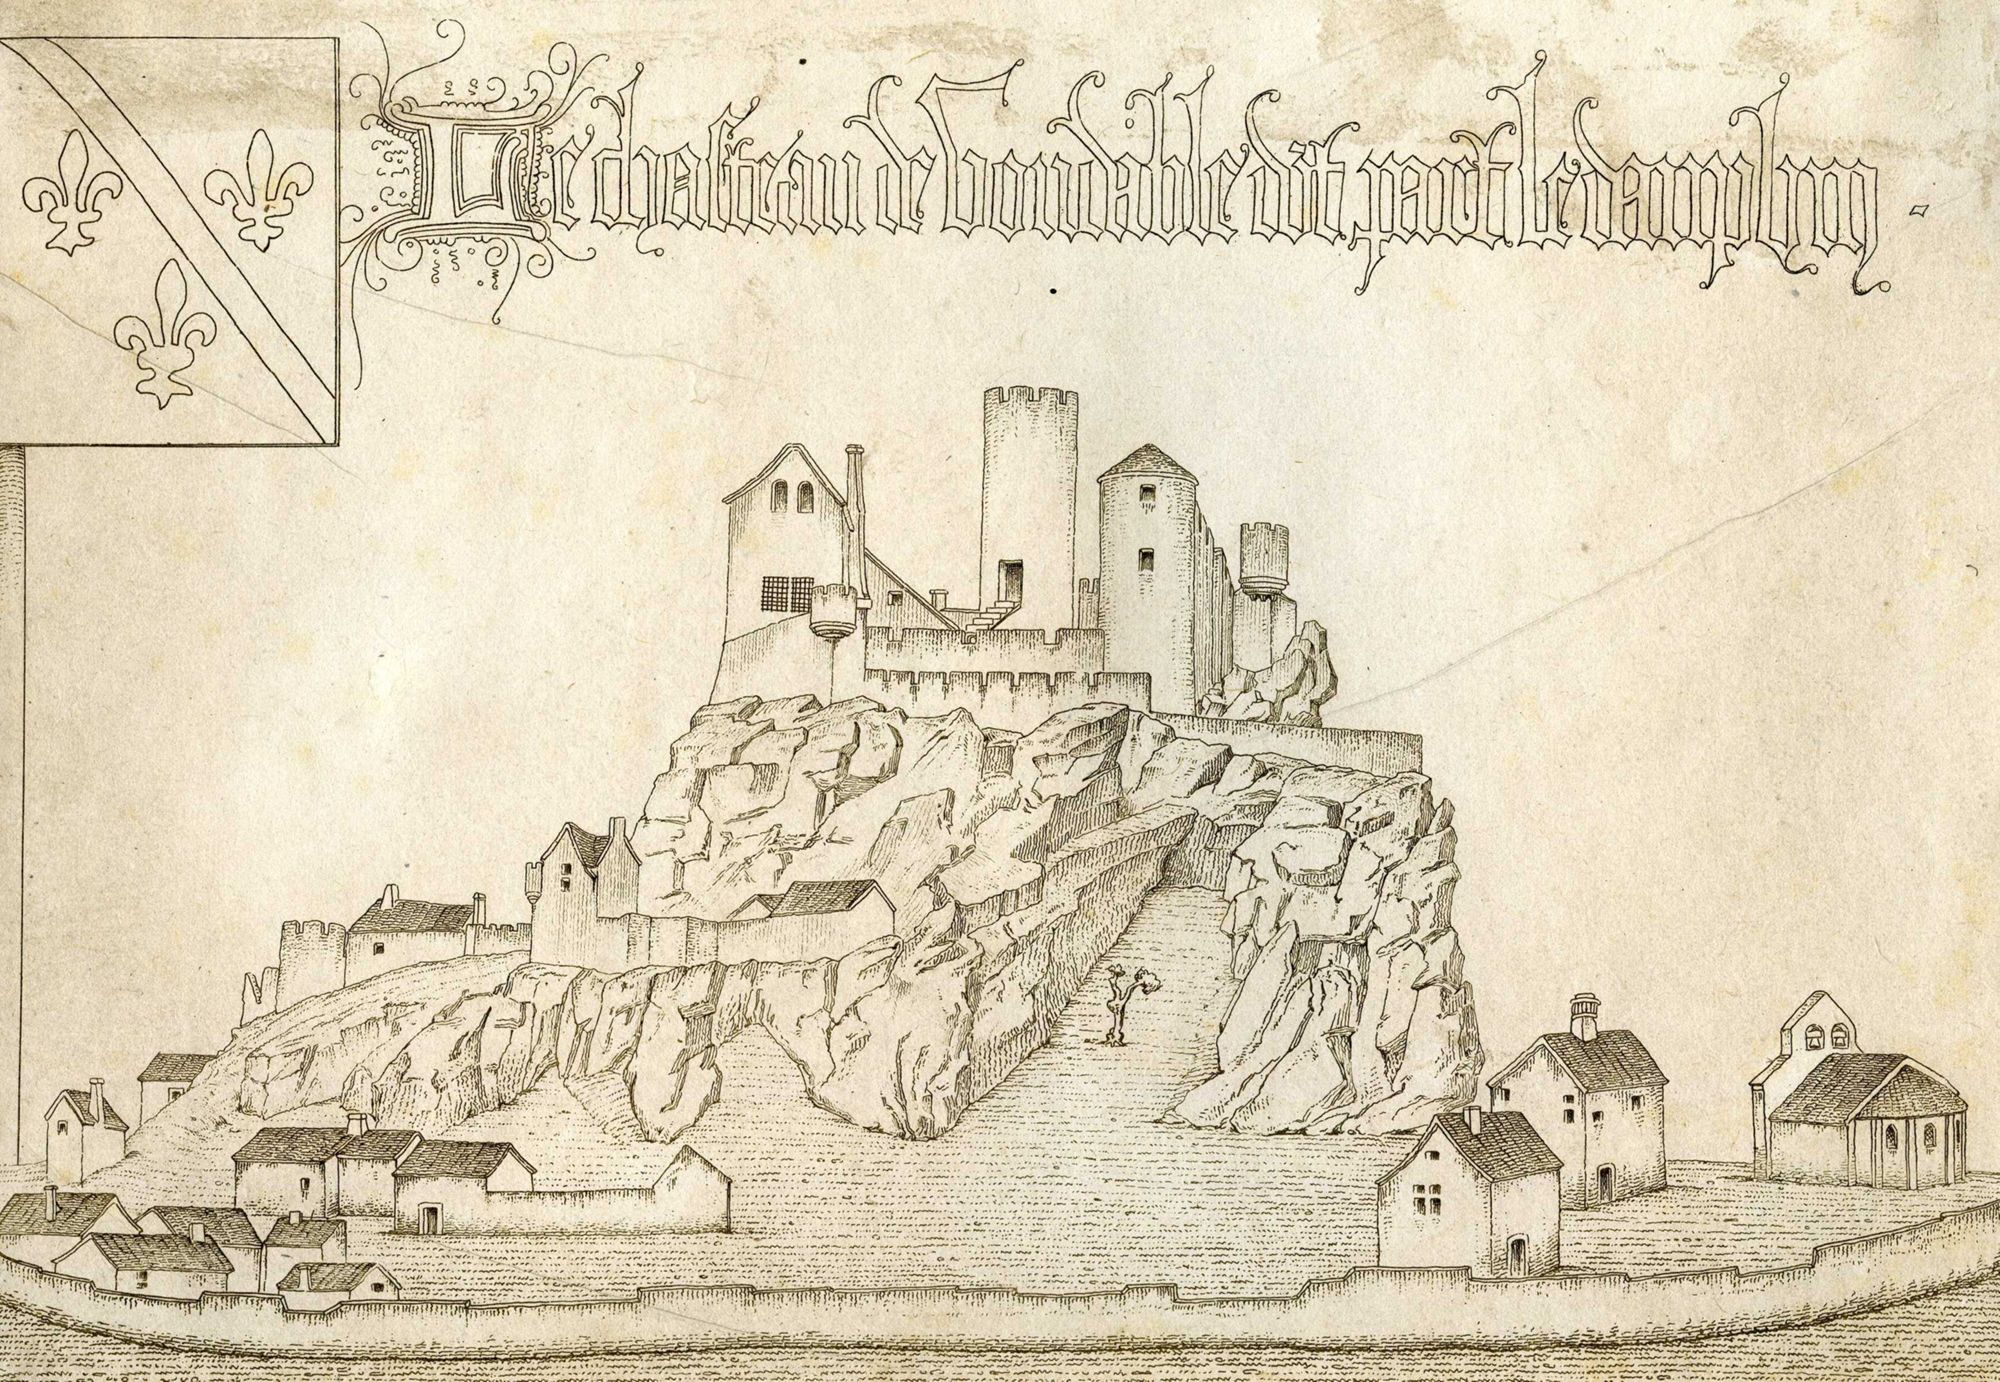 Le chasteau de Voudable dit part le dauphyn